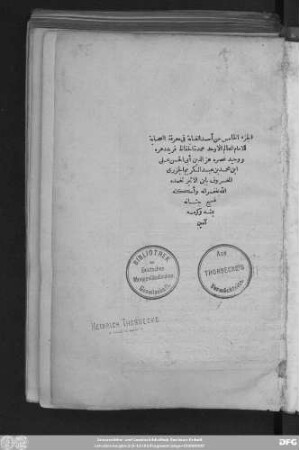 الجزء الخامس من أسد الغابة في معرفة الصحابة
للامام العالم الاوحد عمدة الحفاظ فريد دهره
ووحيد عصره عز الدين أبي الحسن علي
ابن محمد بن عبد الكريم الجزري
المعروف بابن الاثير تغمده
الله بغفرانه وأسكنه
فسيح جنانه
بمنه وكرمه
آمين
BIBLIOTHEK
der
Deutschen
Morgenländischen
Gesellschaft.
Aus
THORBECKE'S
Vermächtniss.
HEINRICH THORBECKE
DFG